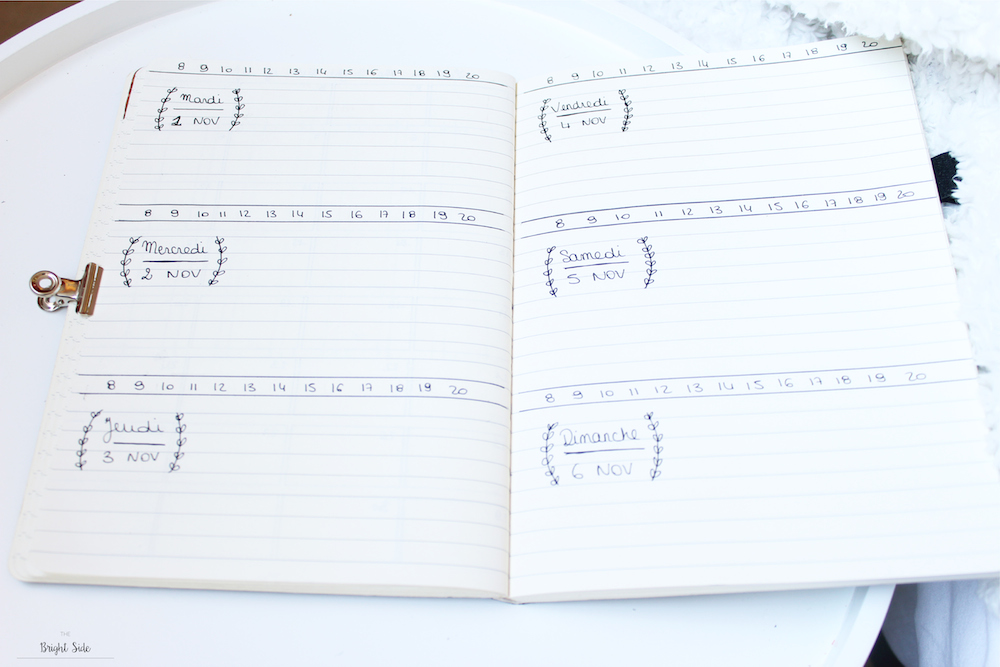 8 9 10 11 12 13 14 15 16 17 18 19 20
Mardi
1 NOV
8 9 10 11 12 13 14 15 16 17 18 19 20
Mercredi
2 NOV
8 9 10 11 12 13 14 15 16 17 18 19 20
Jeudi
3 NOV
8 9 10 11 12 13 14 15 16 17 18 19 20
Vendredi
4 NOV
8 9 10 11 12 13 14 15 16 17 18 19 20
Samedi
5 NOV
8 9 10 11 12 13 14 15 16 17 18 19 20
Dimanche
6 NOV
THE
Bright Side